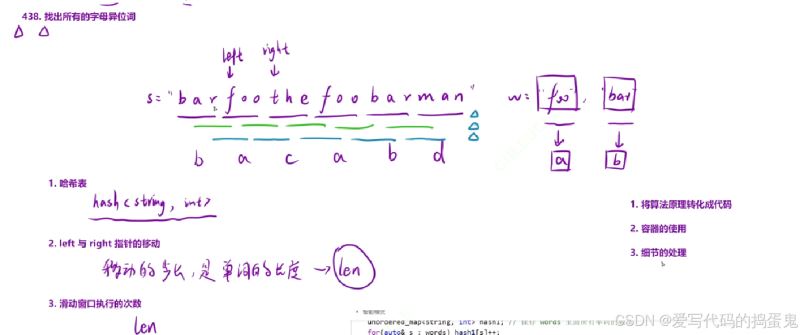 438. 找出所有的字母异位词
left right
s="barfoothefoobarman" w="foo", "bar"
b a c a b d a b
1. 哈希表
hash<string, int>
1. 将算法原理转化成代码
2. 容器的使用
3. 细节的处理
2. left 与 right 指针的移动
移动的步长，是单词的长度 → len
3. 滑动窗口执行的次数
len
unordered_map<string, int> hash1; //
for(auto& s : words) hash1[s]++;
CSDN @爱写代码的捣蛋鬼